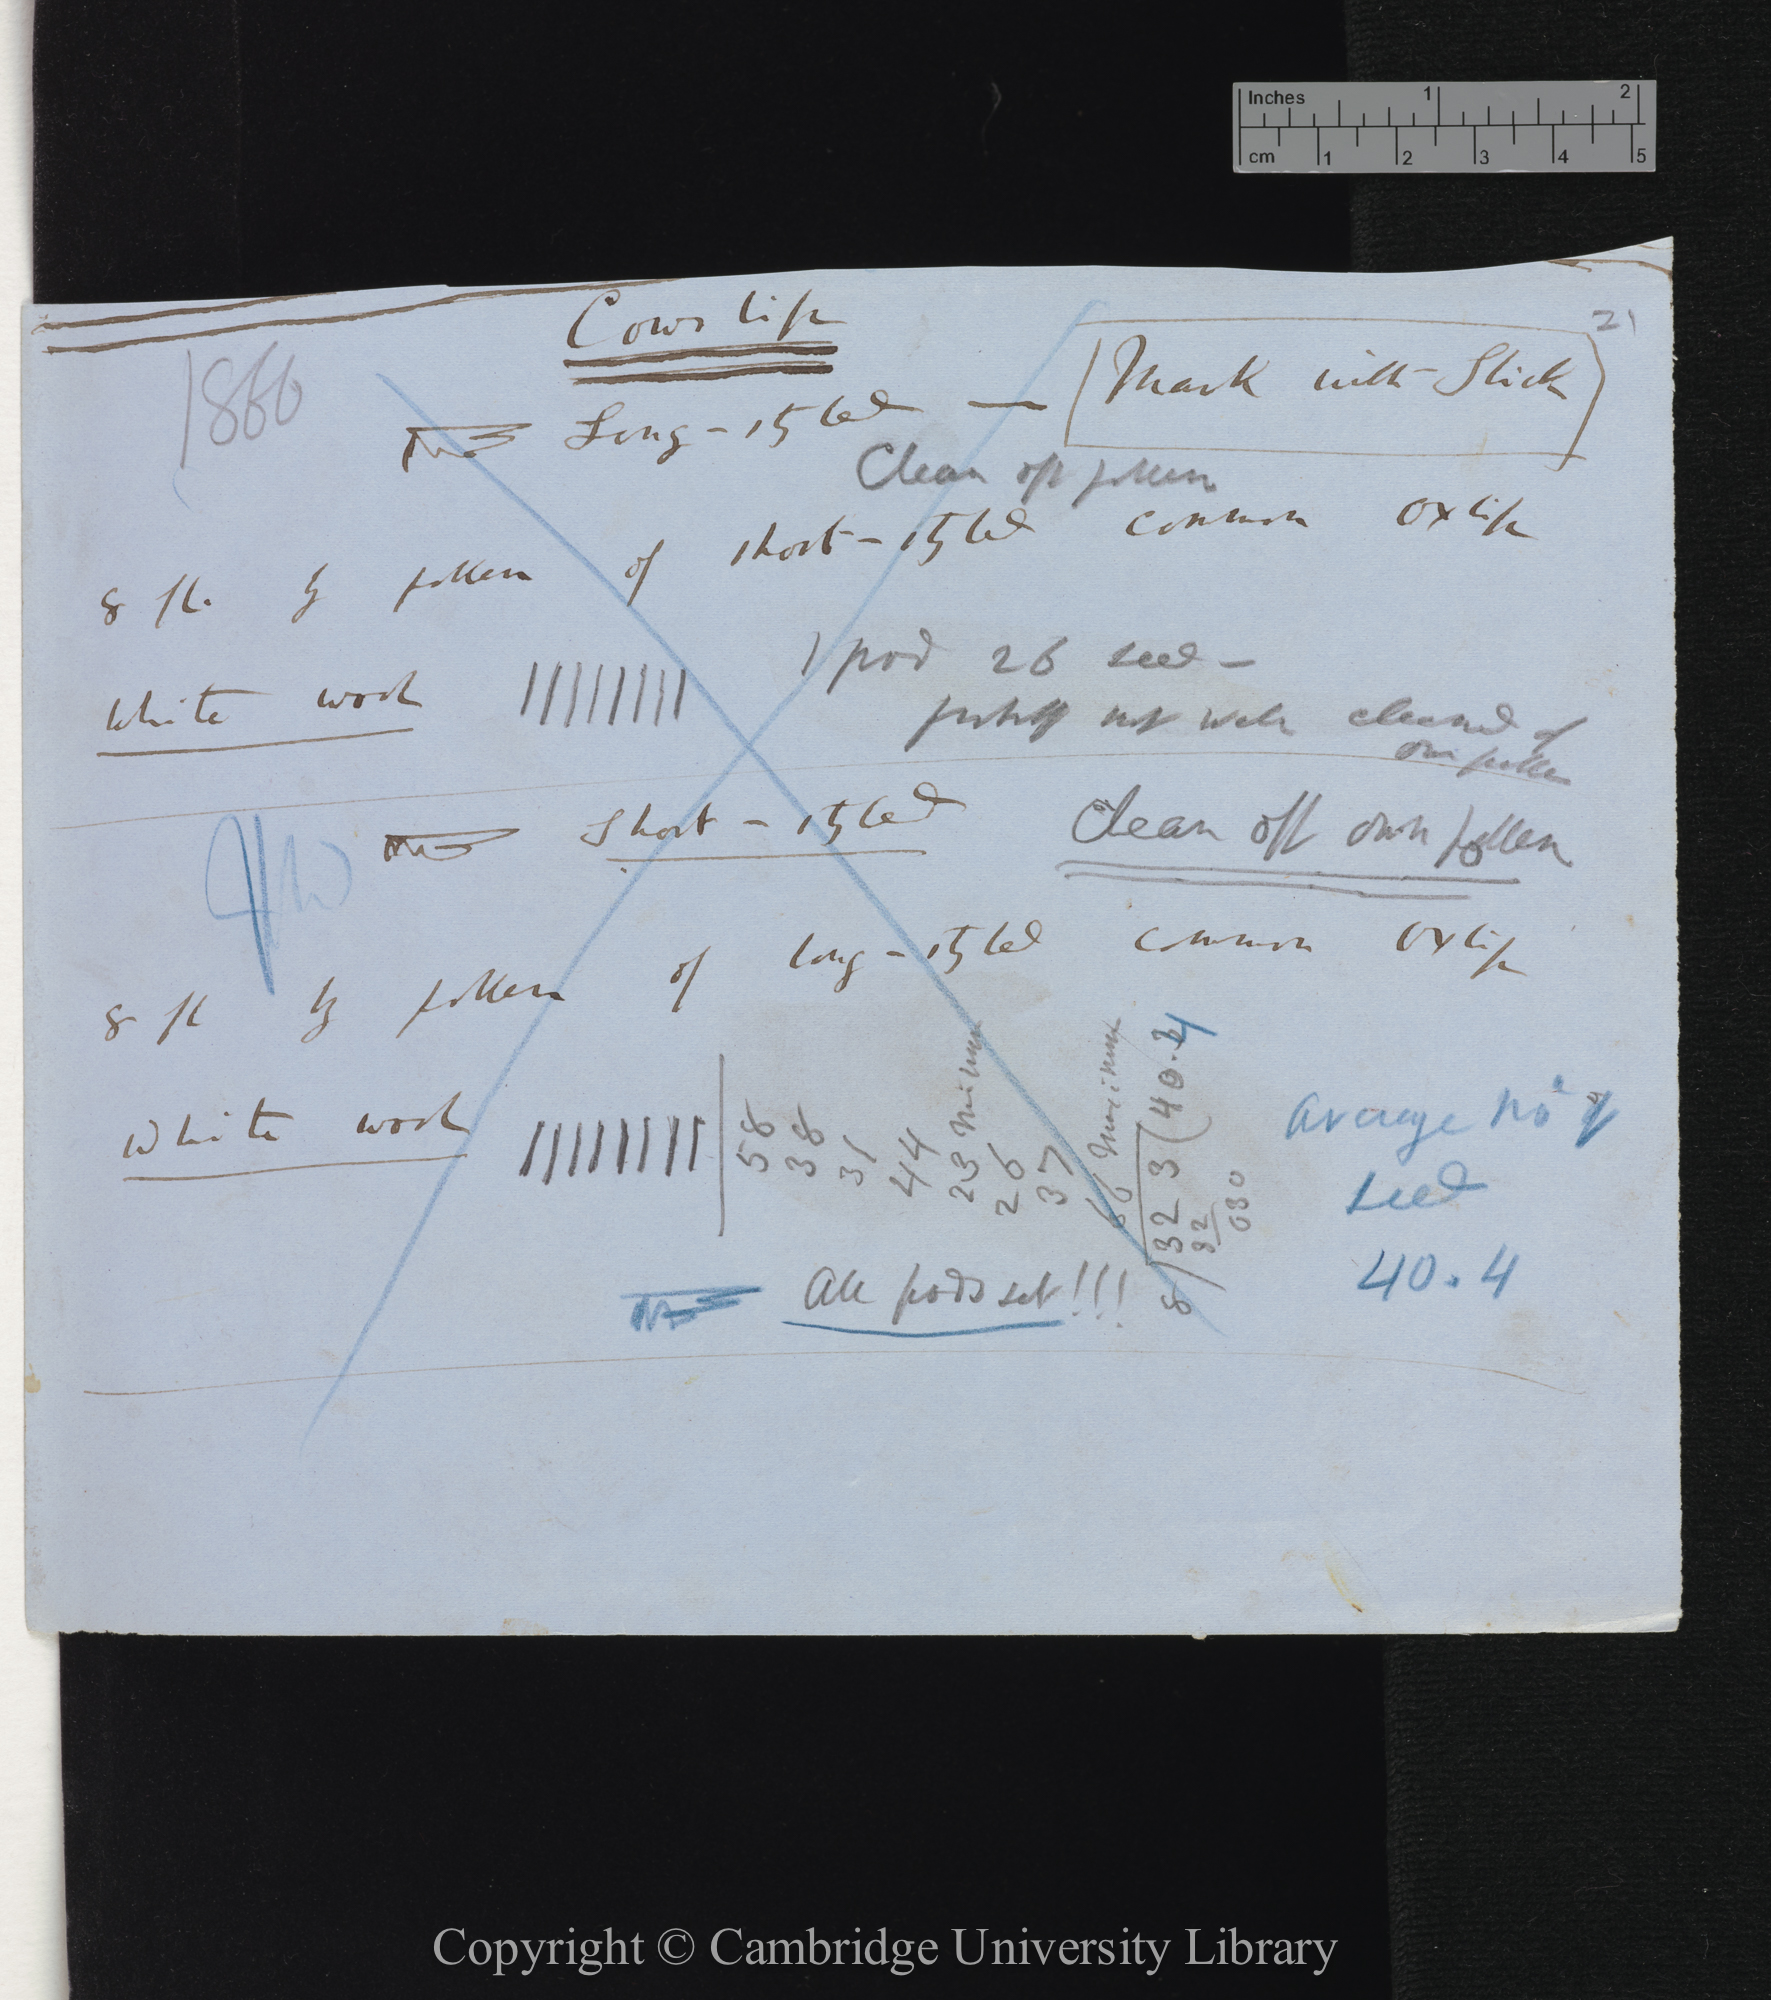 Inches 1 2
cm 1 2 3 4 5
21
Cowslip
1860
Long-styled — (Mark with Stick)
Clean off pollen
8 fl. by pollen of short-styled common oxlip
White wool |||||||| 1 pod 26 seed –
not well cleaned of
own pollen
Short-styled Clean off own pollen
8 fl by pollen of long-styled common oxlip
White wool ||||||||
58
38
31
44
23 Minimum
26
37
66
8)323(40.4
32
030
All pods set!!!
Average No of
seed
40.4
Copyright © Cambridge University Library